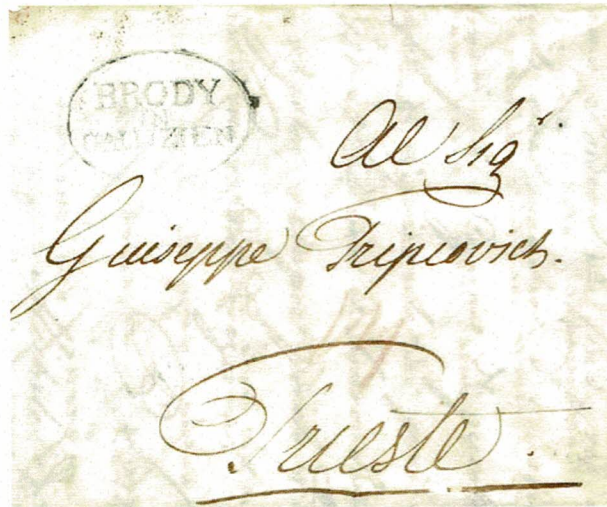 BRODY
IN
GALLIZIEN
Al Sigr
Guiseppe Tripcovich.
Trieste.